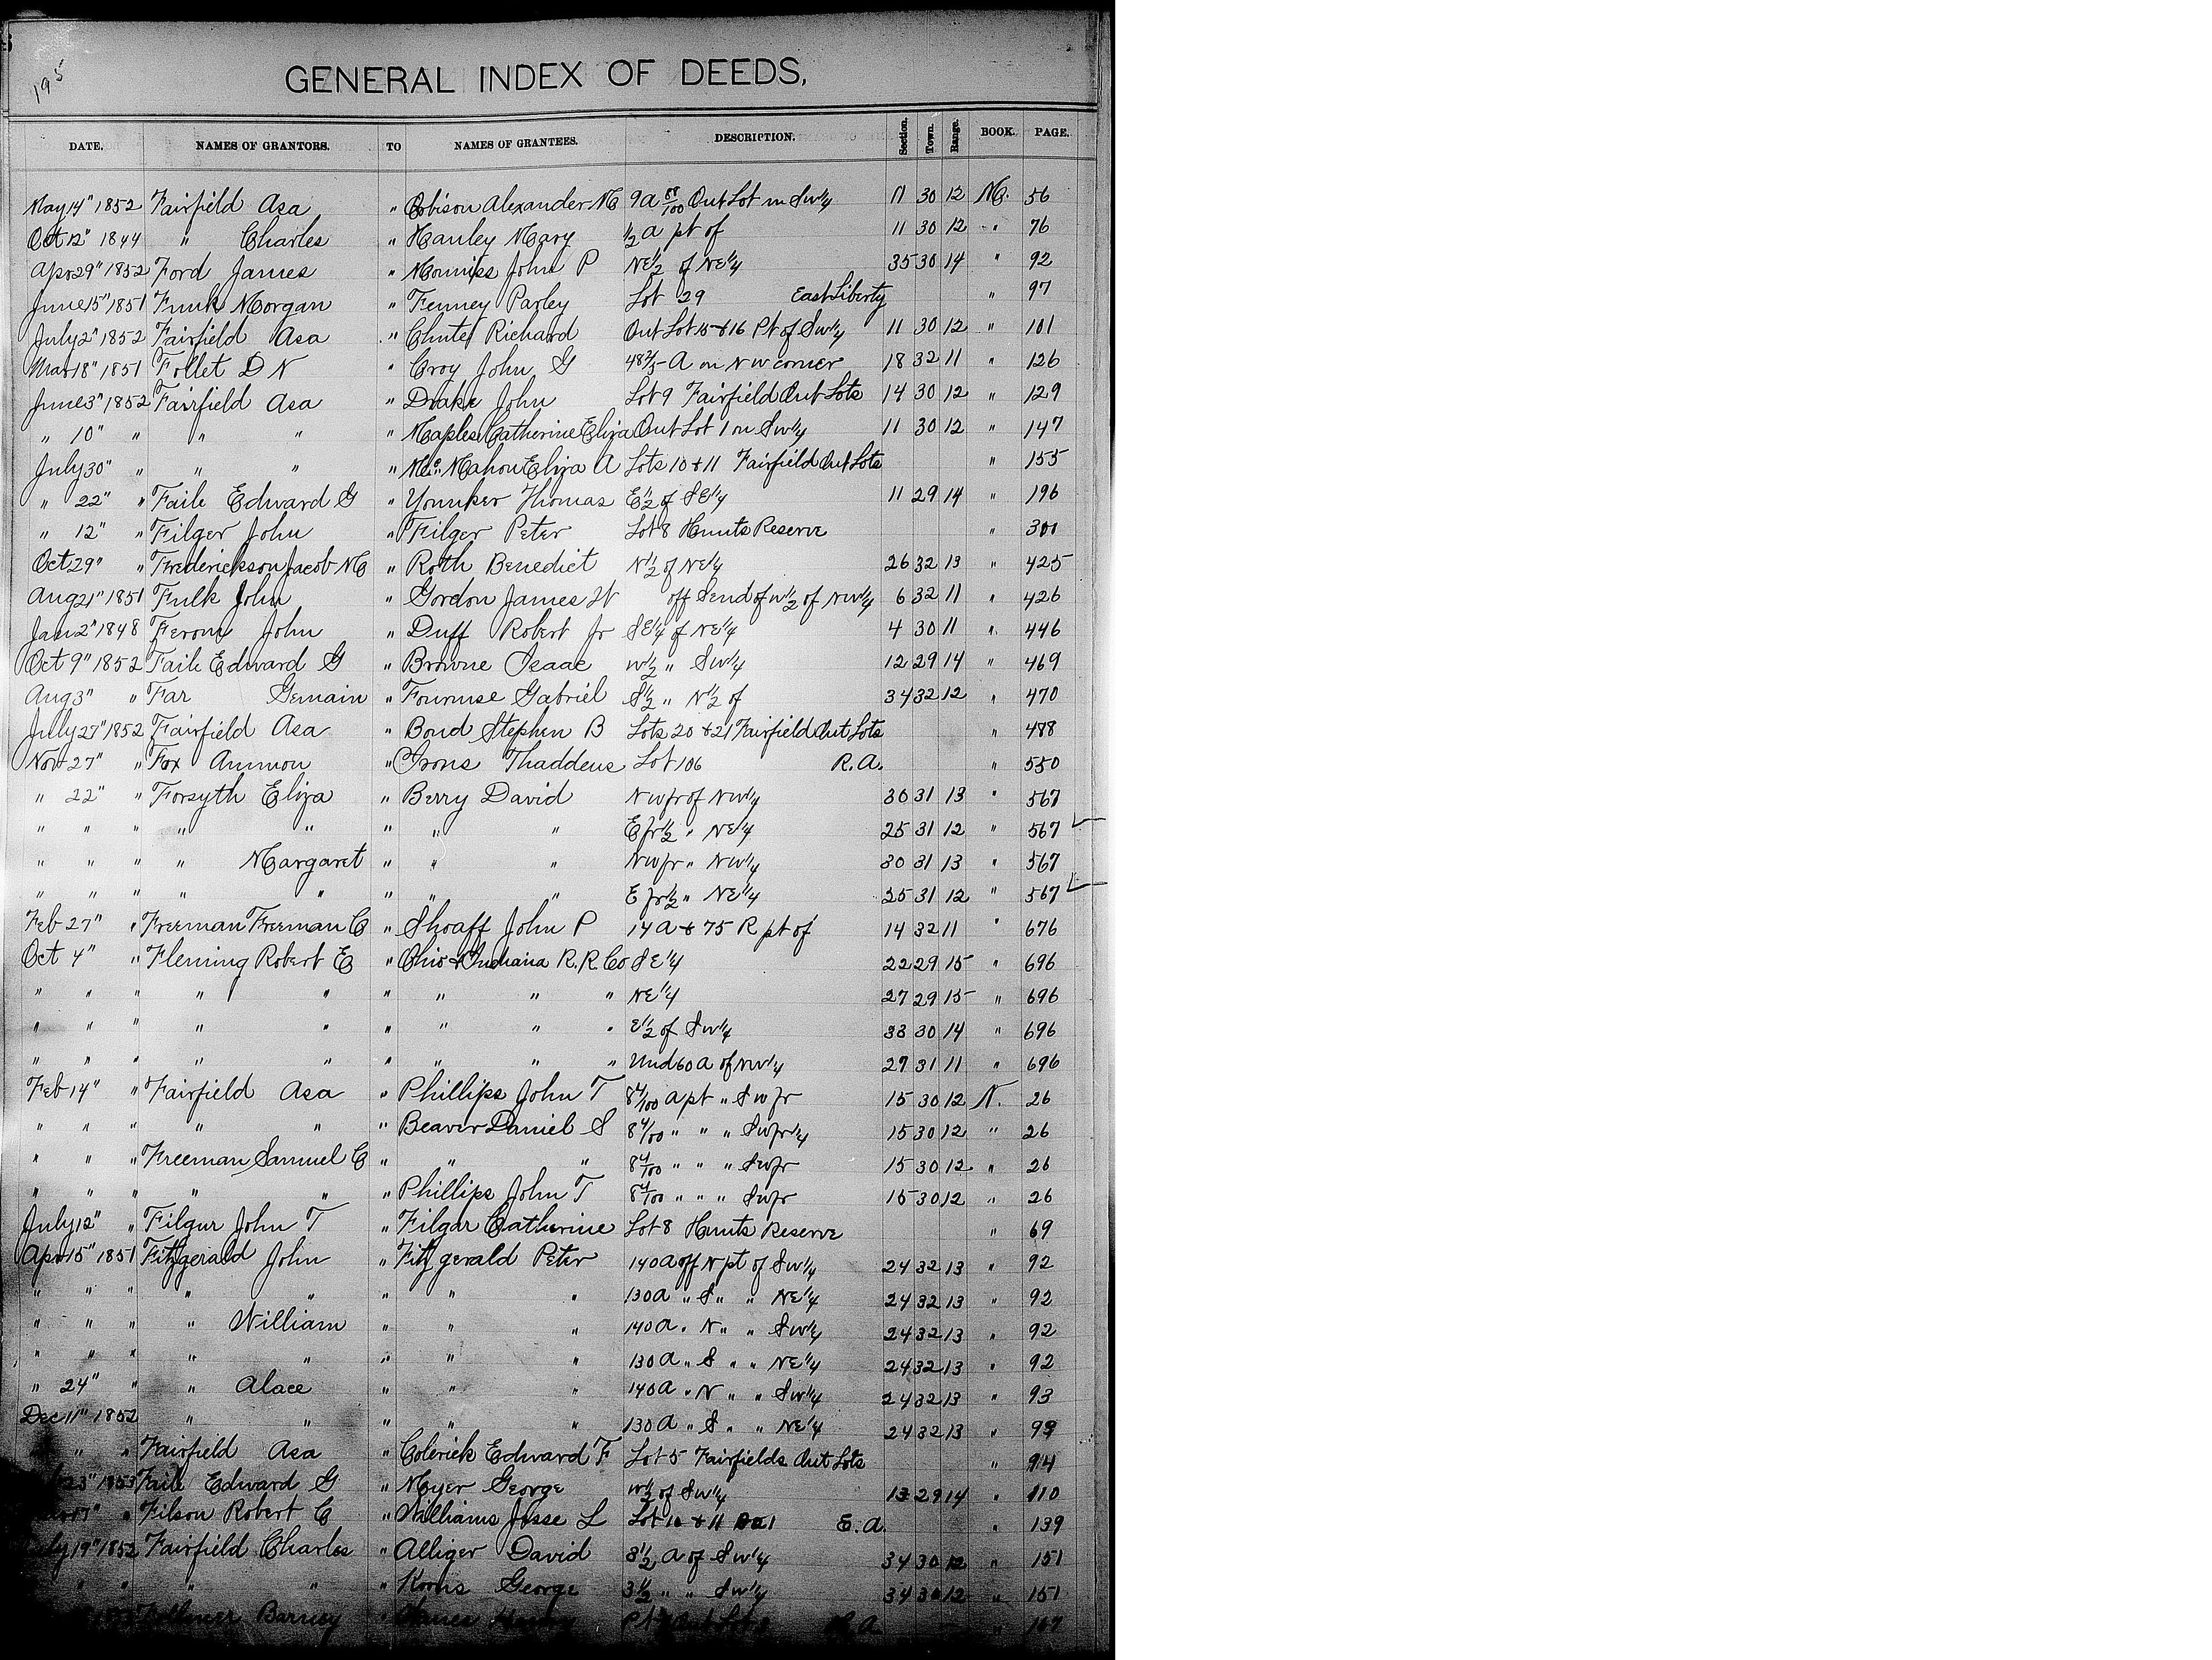 195
GENERAL INDEX OF DEEDS,
DATE. NAMES OF GRANTORS. TO NAMES OF GRANTEES. DESCRIPTION. Section. Town. Range. BOOK. PAGE.
May 14" 1852 Fairfield Asa " Robison Alexander M 9 a 88/100 Out Lot in Sw 1/4 11 30 12 M. 56
Oct 12" 1844 " Charles " Hanley Mary 1/2 a pt of 11 30 12 " 76
Apr 29" 1852 Ford James " John P NE 1/2 of NE 1/4 35 30 14 " 92
June 15" 1851 Funk Morgan " Tenney Parley Lot 29 East Liberty " 97
July 2" 1852 Fairfield Asa " Chute Richard Out Lot 15 & 16 Pt of Sw 1/4 11 30 12 " 101
Mar 18" 1851 Follet D N " Croy John G 48 2/5 A on N w corner 18 32 11 " 126
June 3" 1852 Fairfield Asa " Drake John Lot 9 Fairfield Out Lots 14 30 12 " 129
" 10" " " " " Maples Catherine Eliza Out Lot 1 in Sw 1/4 11 30 12 " 147
July 30" " " " " Mc. Mahon Eliza A Lots 10 & 11 Fairfield Out Lots " 155
" 22" " Faile Edward G " Younker Thomas E 1/2 of SE 1/4 11 29 14 " 196
" 12" " Filger John " Filger Peter Lot 8 Hunts Reserve " 301
Oct 29" " Frederickson Jacob M " Roth Benedict N 1/2 of NE 1/4 26 32 13 " 425
Aug 21" 1851 Fulk John " Gordon James W off S end of w 1/2 of Nw 1/4 6 32 11 " 426
Jan 2" 1848 Ferony John " Duff Robert Jr SE 1/4 of NE 1/4 4 30 11 " 446
Oct 9" 1852 Faile Edward G " Browne Isaac w 1/2 " Sw 1/4 12 29 14 " 469
Aug 3" " Far Gemain " Fournise Gabriel S 1/2 " N 1/2 of 34 32 12 " 470
July 27" 1852 Fairfield Asa " Bond Stephen B Lots 20 & 21 Fairfield Out Lots " 488
Nov 27" " Fox Ammon " Irons Thaddeus Lot 106 R.A. " 550
" 22" " Forsyth Eliza " Berry David Nw fr of Nw 1/4 30 31 13 " 567
" " " " " " " " E fr 1/2 " NE 1/4 25 31 12 " 567
" " " " Margaret " " " Nw fr " Nw 1/4 30 31 13 " 567
" " " " " " " " E fr 1/2 " NE 1/4 25 31 12 " 567
Feb 27" " Freeman Freeman C " Shoaff John P 14 a & 75 R pt of 14 32 11 " 676
Oct 4" " Fleming Robert E " Ohio & Indiana R.R. Co SE 1/4 22 29 15 " 696
" " " " " " " " " NE 1/4 27 29 15 " 696
" " " " " " " " " E 1/2 of Sw 1/4 33 30 14 " 696
" " " " " " " " " Und 60 a of Nw 1/4 27 31 11 " 696
Feb 14" " Fairfield Asa " Phillips John T 8 4/100 a pt " Sw fr 15 30 12 N. 26
" " " " " " Beaver Daniel S 8 4/100 " " " Sw fr 1/4 15 30 12 " 26
" " " Freeman Samuel C " " " 8 4/100 " " " Sw fr 15 30 12 " 26
" " " " " " Phillips John T 8 4/100 " " " Sw fr 15 30 12 " 26
July 12" " Filgur John T " Filgar Catherine Lot 8 Hunts Reserve " 69
Apr 15" 1851 Fitzgerald John " Fitzgerald Peter 140 a off N pt of Sw 1/4 24 32 13 " 92
" " " " " " " " 130 a " S " " NE 1/4 24 32 13 " 92
" " " " William " " " 140 a " N " " Sw 1/4 24 32 13 " 92
" " " " " " " " 130 a " S " " NE 1/4 24 32 13 " 92
" 24" " " Alace " " " 140 a " N " " Sw 1/4 24 32 13 " 93
Dec 11" 1852 " " " " " 130 a " S " " NE 1/4 24 32 13 " 93
" " Fairfield Asa " Colerick Edward F Lot 5 Fairfields Out Lots " 94
23" 1853 Faile Edward G " Meyer George w 1/2 of Sw 1/4 13 29 14 " 110
17" " Filson Robert C " Williams Jesse L Lot 10 & 11 E.a. " 139
July 19" 1852 Fairfield Charles " Alliger David 8 1/2 a of Sw 1/4 34 30 12 " 151
" " " " " Koons George 3 1/2 " " Sw 1/4 34 30 12 " 151
Barney " Out Lot a. " 167